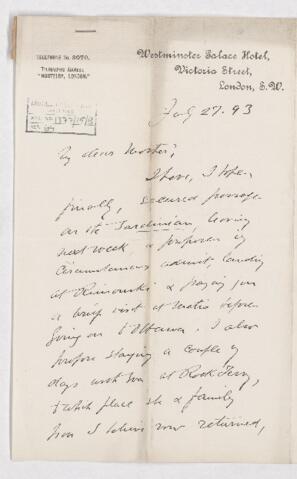 TELEPHONE No. 3070.
TELEGRAPHIC ADDRESS
Westminster Palace Hotel,
Victoria Street,
London, S.W.
July 27. 93
My dear Mother,
I have, I hope,
finally, secured passage
on the Sardinian, leaving
next week, & propose, if
circumstances admit, landing
at Rimouski & paying you
a brief visit at before
going on to Ottawa. I also
propose staying a couple of
days with at Rock Ferry,
to which place she & family
have I believe now returned,